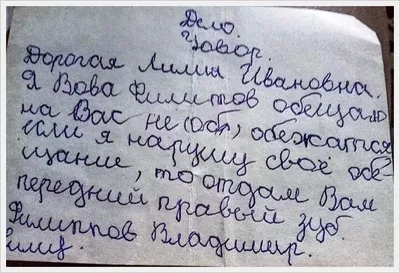 Дело.
Уовор.
Дорогая Лилия Ивановна.
Я Вова Филипов обещаю
на Вас не (об), обежатся
если я нарушу своё обе-
щание, то отдам Вам
передний правый зуб.
Филиппов Владимир.